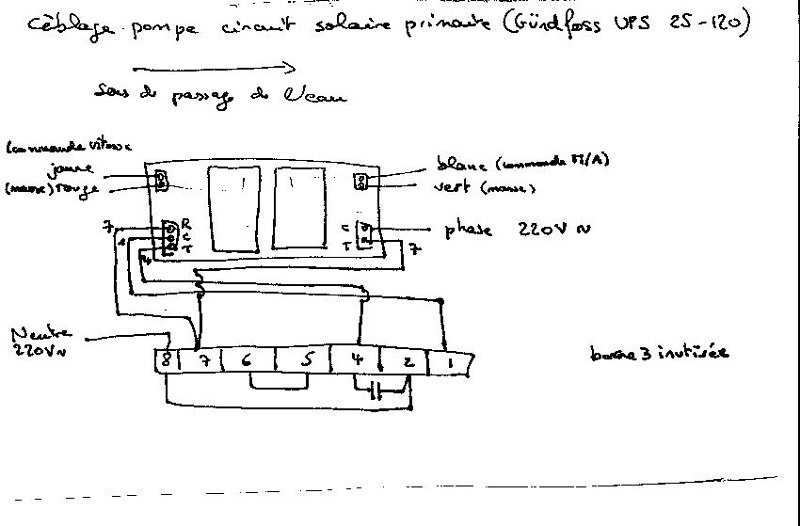 Câblage pompe circuit solaire primaire (Gründfoss UPS 25-120)
Sens de passage de l'eau
Commande vitesse
jaune
(masse) rouge
blanc (commande M/A)
vert (masse)
R
C
T
7
1
4
C
T
7
phase 220V ~
Neutre
220V ~
8 7 6 5 4 2 1
borne 3 inutilisée